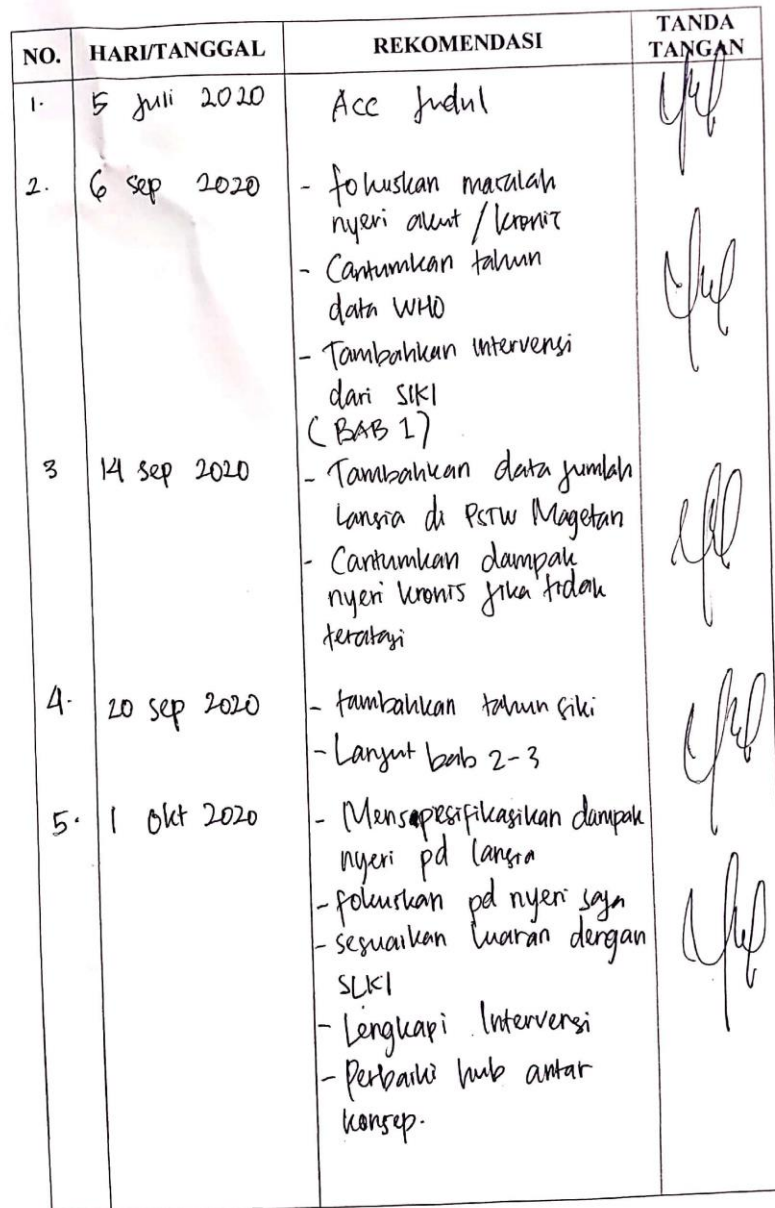 NO. HARI/TANGGAL REKOMENDASI TANDA TANGAN
1. 5 Juli 2020 Acc Judul
2. 6 Sep 2020 - fokuskan masalah
nyeri akut / kronis
- Cantumkan tahun
data WHO
- Tambahkan intervensi
dari SIKI
(BAB 1)
3 14 Sep 2020 - Tambahkan data jumlah
Lansia di PSTW Magetan
- Cantumkan dampak
nyeri kronis jika tidak
teratasi
4. 20 Sep 2020 - tambahkan tahun siki
- Lanjut bab 2-3
5. 1 Okt 2020 - Mensepesifikasikan dampak
nyeri pd lansia
- fokuskan pd nyeri saja
- sesuaikan luaran dengan
SLKI
- Lengkapi Intervensi
- Perbaiki hub antar
konsep.